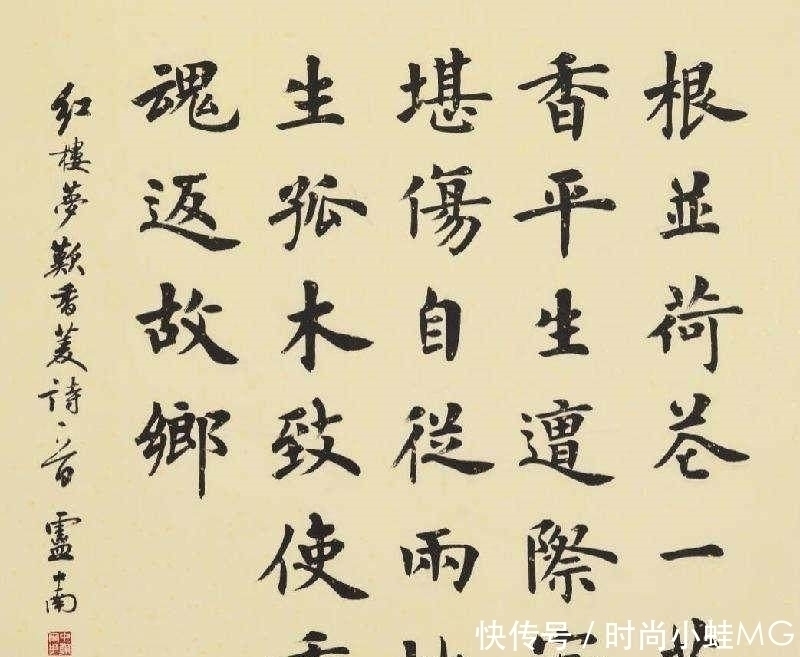 根並荷花一
香平生遭際
堪傷自從兩
生孤木致使
魂返故鄉
紅樓夢歎香菱詩一首 盧中南
快传号 / 时尚小蛙MG